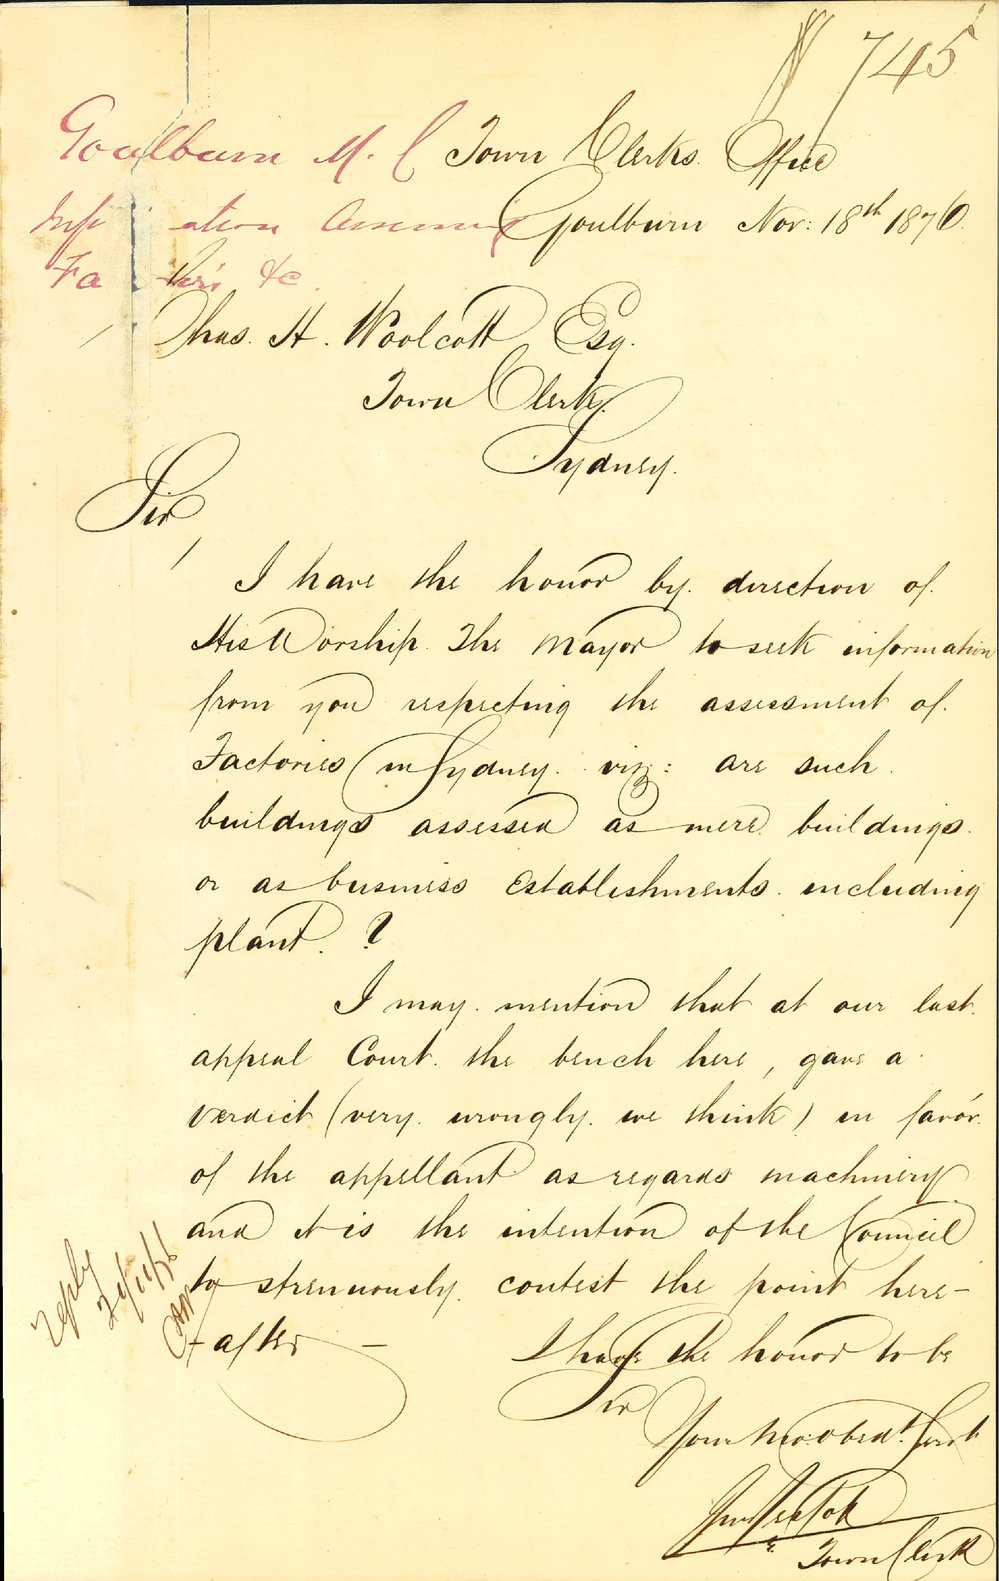 745
Goulburn M. C
Town Clerks Office
Goulburn Nov: 18th 1876
Chas. H. Woolcott Esq.
Town Clerk
Sydney.
Sir,
I have the honor by direction of
His Worship The Mayor to seek information
from you respecting the assessment of
Factories in Sydney. viz: are such
buildings assessed as mere buildings
or as business Establishments including
plant. ?
I may mention that at our last
appeal Court the bench here, gave a
verdict (very wrongly we think) in favor
of the appellant as regards machinery
and it is the intention of the Council
to strenuously contest the point here-
after —
I have the honor to be
Sir
Your Mo: Obedt. Servt
Town Clerk
reply